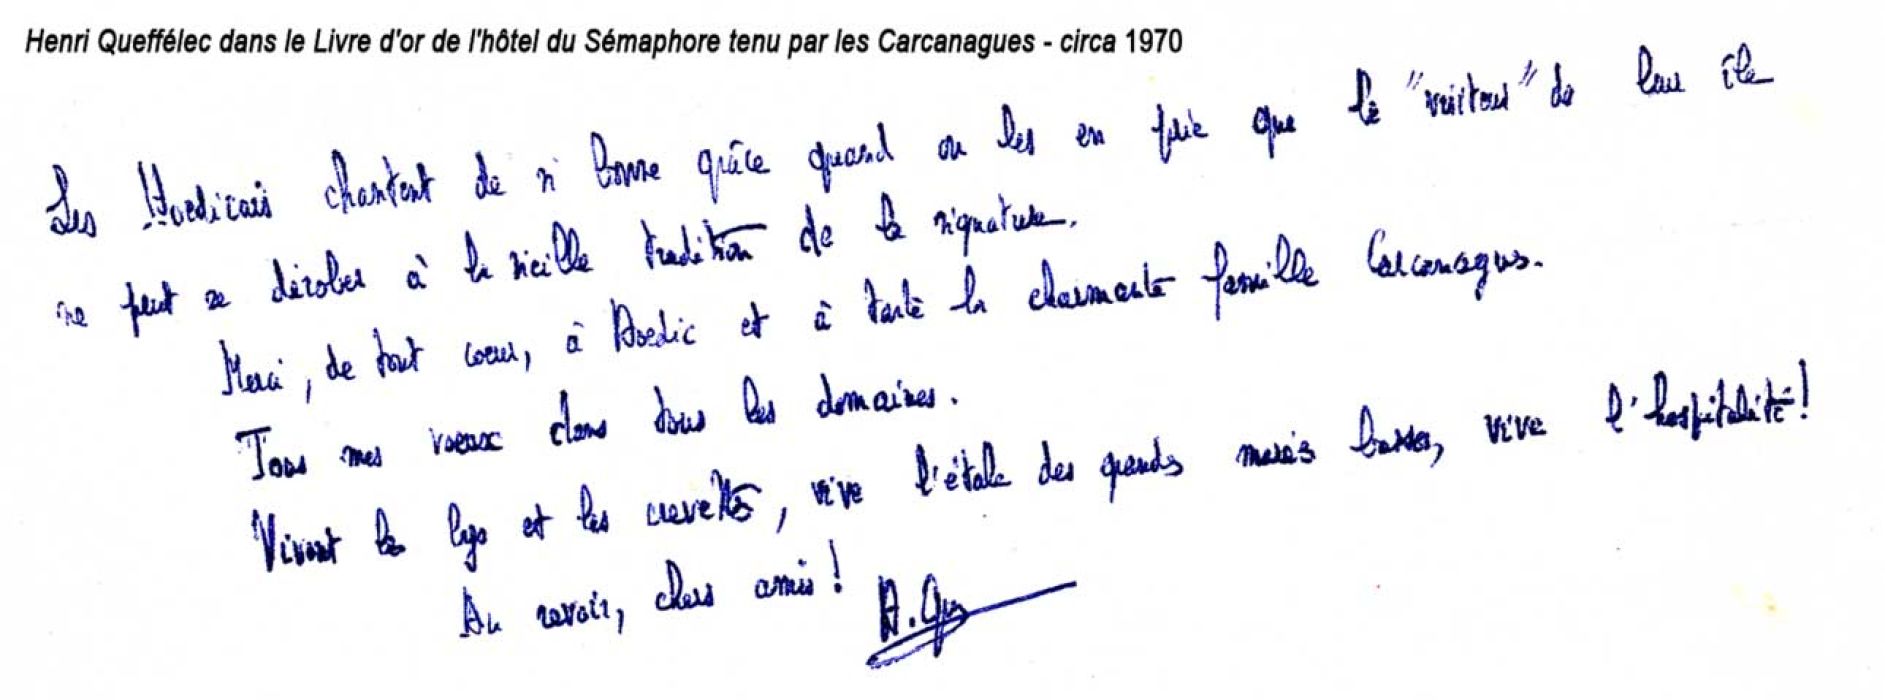 Henri Queffélec dans le Livre d'or de l'hôtel du Sémaphore tenu par les Carcanagues - circa 1970
Les Hoedicais chantent de si bonne grâce quand on les en prie que le "visiteur" de leur île
ne peut se dérober à la vieille tradition de la signature.
Merci, de tout coeur, à Hoedic et à toute la charmante famille Carcanagues.
Tous mes voeux dans tous les domaines.
Vivent les lys et les crevettes, vive l'étale des grandes marées basses, vive l'hospitalité!
Au revoir, chers amis! H. Qu